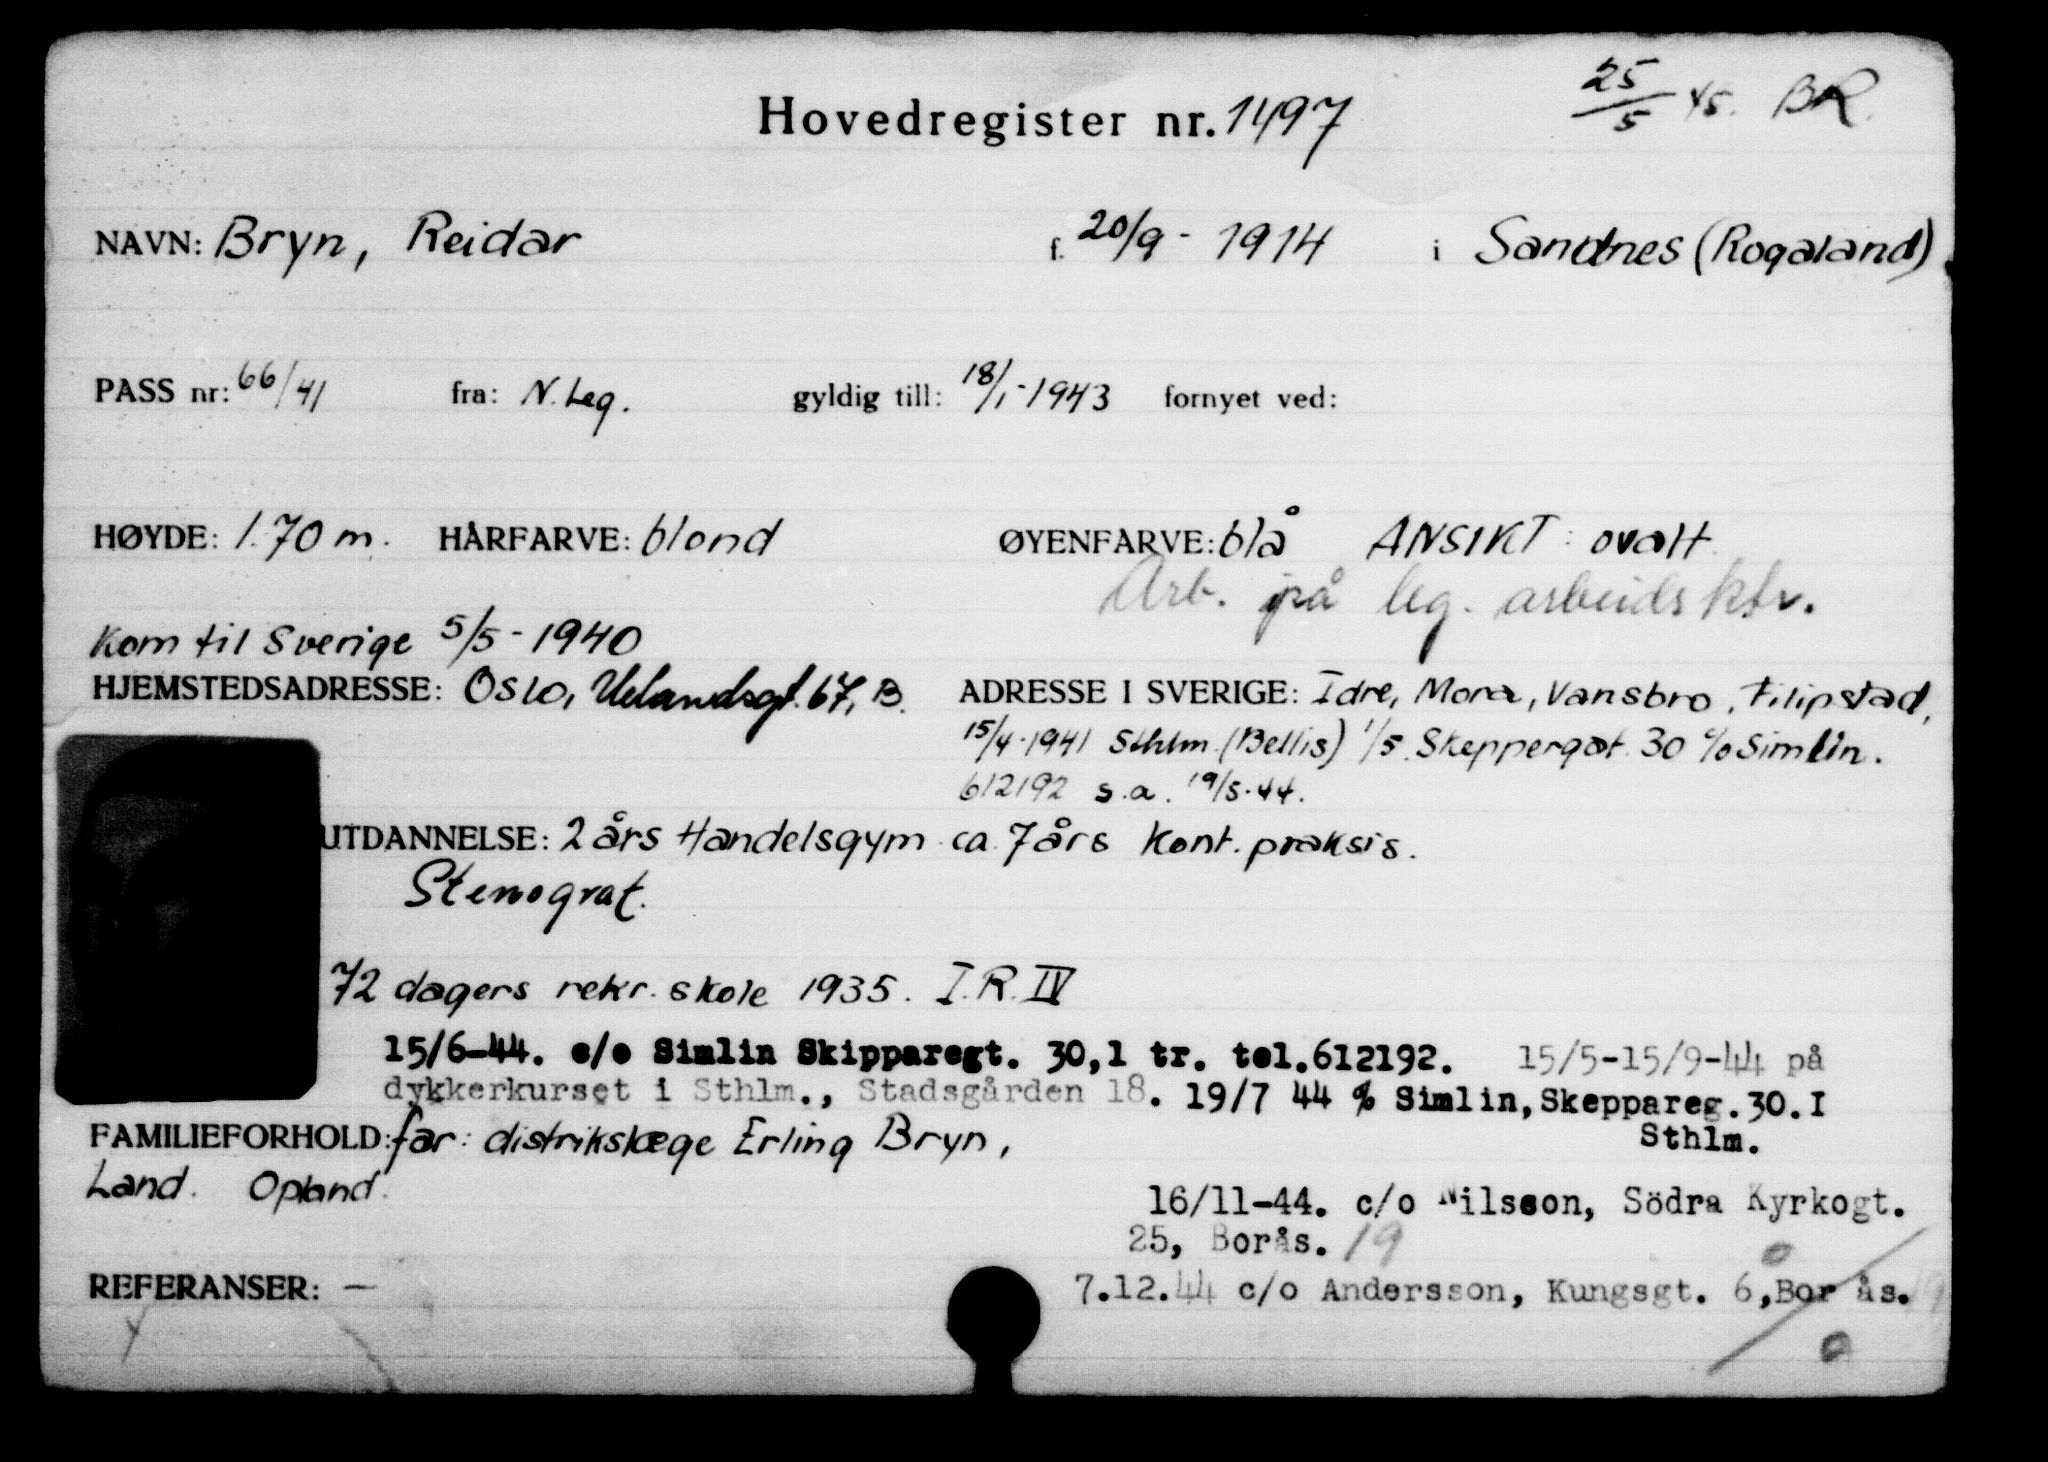 25/5 45. BR.
Hovedregister nr. 1497
NAVN: Bryn, Reidar f. 20/9 - 1914 i Sandnes (Rogaland)
PASS nr: 66/41 fra: N. Leg. gyldig till: 18/1-1943 fornyet ved:
HØYDE: 1.70 m. HÅRFARVE: blond ØYENFARVE: blå ANSIKT: ovalt
Arb. på leg. arbeidsktr.
Kom til Sverige 5/5-1940
HJEMSTEDSADRESSE: Oslo, Uelandsgt. 67, B. ADRESSE I SVERIGE: Idre, Mora, Vansbro, Filipstad,
15/4-1941 Sthlm. (Bellis) 1/5. Skeppergat. 30 c/o Simlin.
612192 s.a. 19/5-44.
UTDANNELSE: 2 års Handelsgym ca. 7 års Kont. praksis.
Stenograf.
72 dagers rekr. skole 1935. I.R. IV
15/6-44. c/o Simlin Skipparegt. 30,1 tr. tel.612192. 15/5-15/9-44 på
dykkerkurset i Sthlm., Stadsgården 18. 19/7 44 % Simlin, Skeppareg. 30. I
Sthlm.
FAMILIEFORHOLD: far: distrikslæge Erling Bryn,
Land. Opland.
16/11-44. c/o Nilsson, Södra Kyrkogt.
25, Borås. 19
REFERANSER: —
7.12.44 c/o Andersson, Kungsgt. 6, Bor ås.